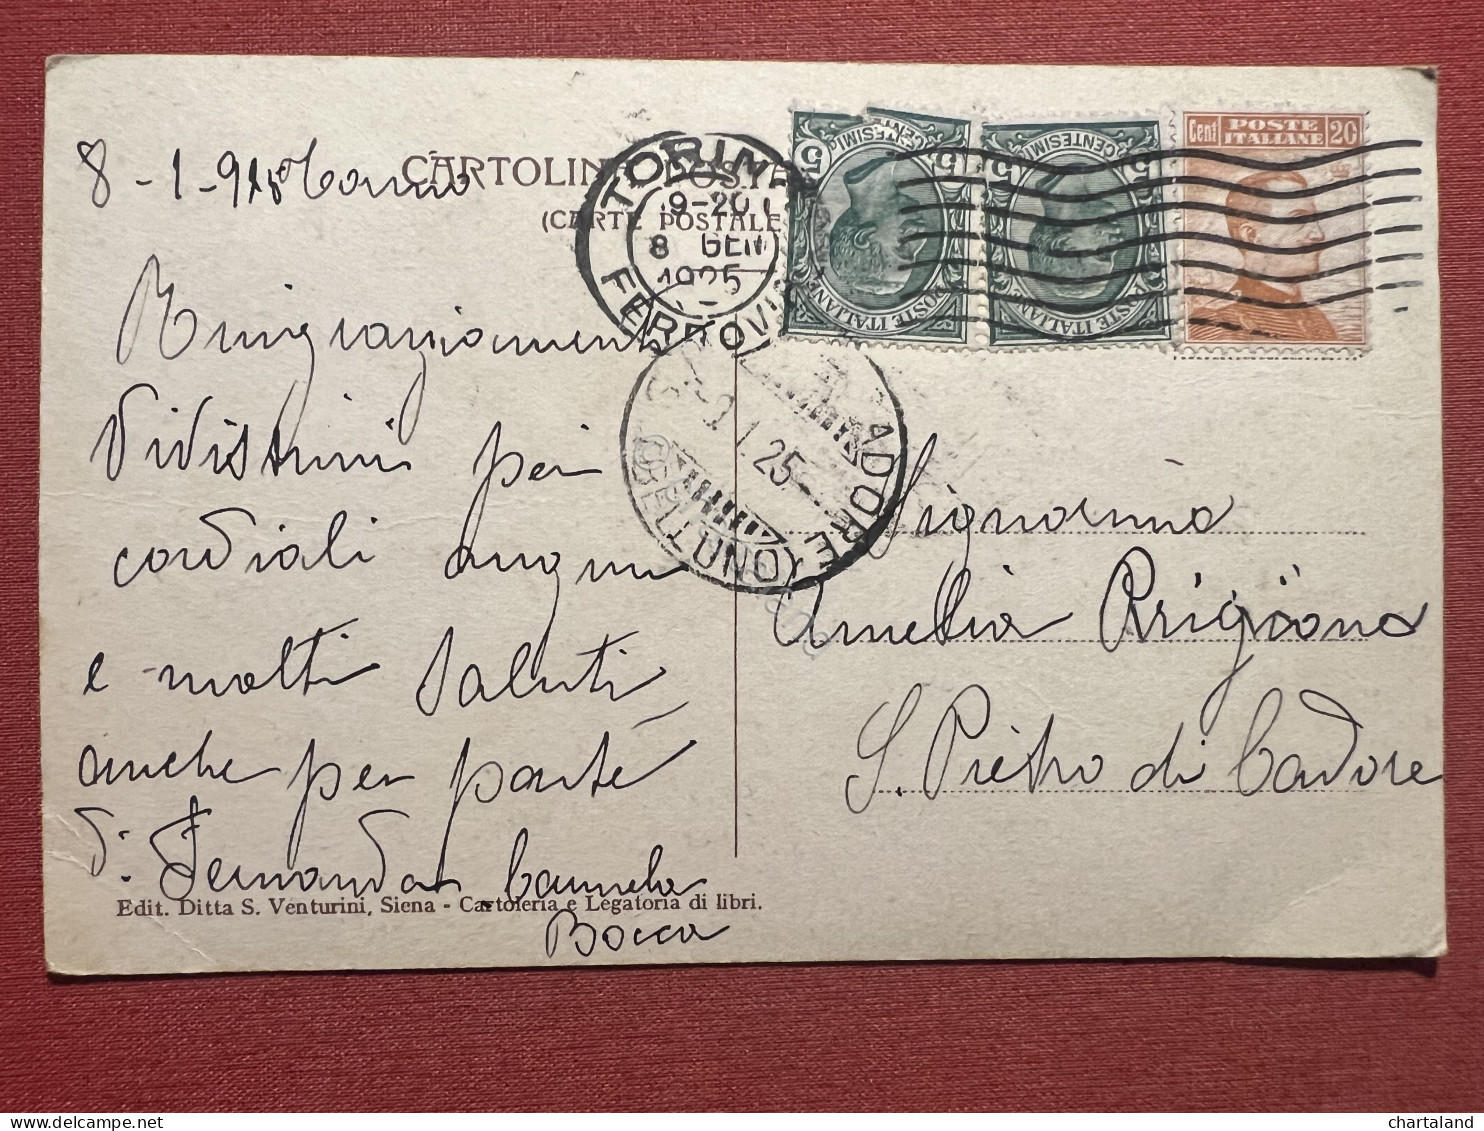 8-1-925 Torino
CARTOLINA POSTALE
(CARTE POSTALE
TORINO
19-20
8 GEN
1925
FERROVIA
CENTESIMI 5
5
POSTE ITALIANE
CENTESIMI 5
5
POSTE ITALIANE
Cent POSTE ITALIANE 20
CADORE
1 25
(BELLUNO)
Ringraziamenti
Vivissimi per i
cordiali auguri
e molti saluti
anche per parte
di Fernanda
Bocca
Signorina
Amelia
S. Pietro di Cadore
Edit. Ditta S. Venturini, Siena - Cartoleria e Legatoria di libri.
chartaland